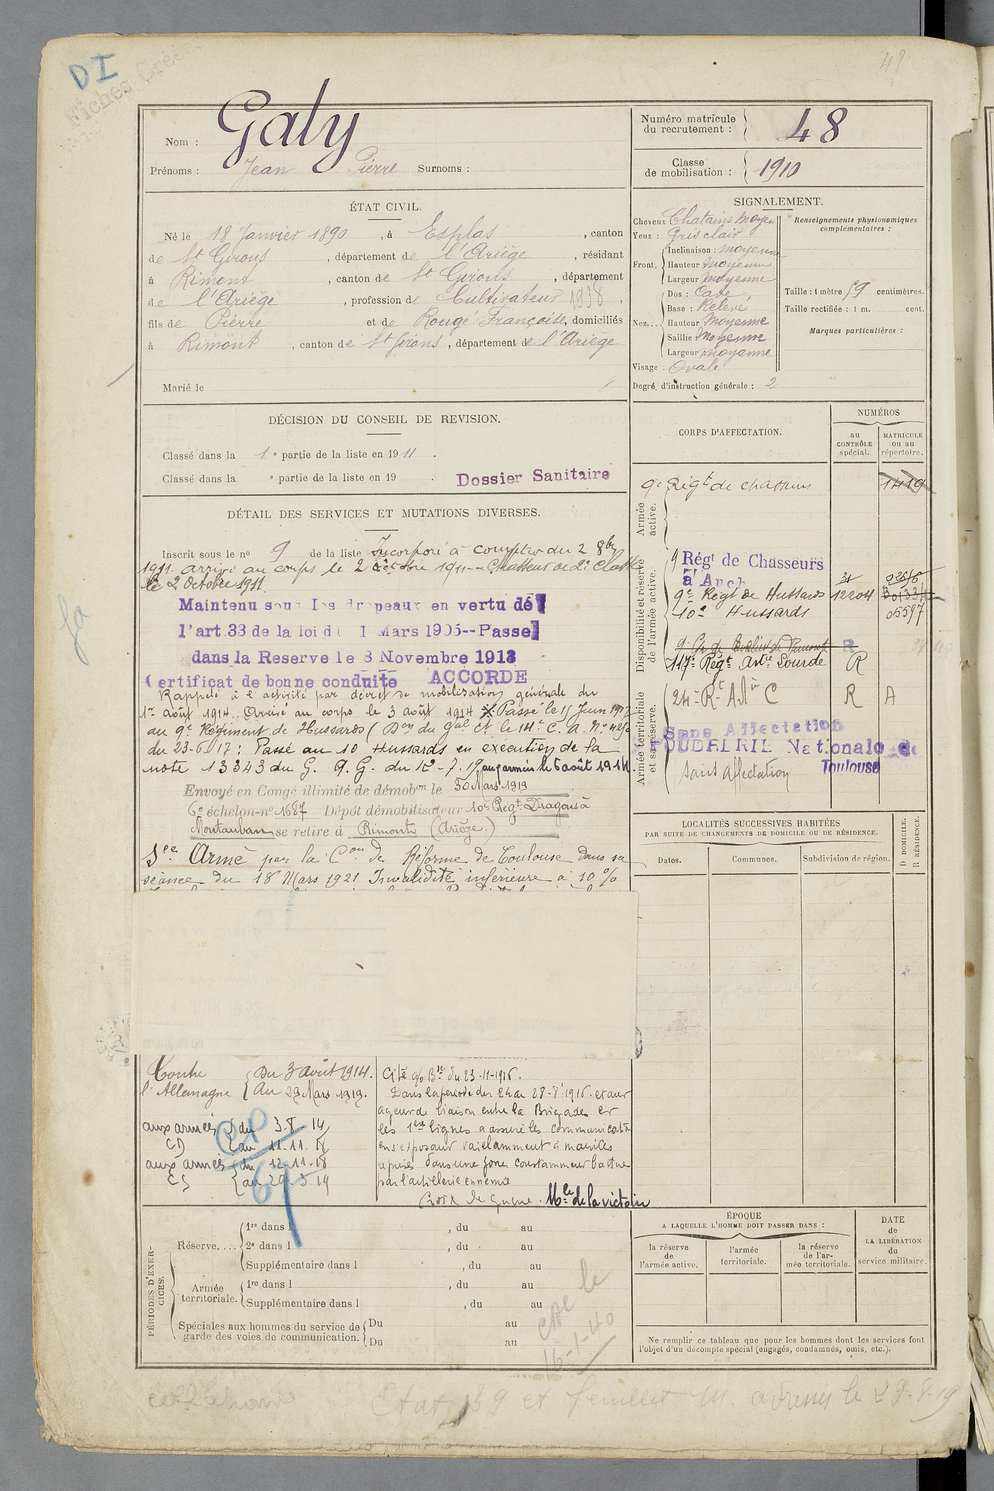 DI
48
Nom : Galy
Prénoms : Jean Pierre Surnoms :
Numéro matricule du recrutement : 48
Classe de mobilisation : 1910
ÉTAT CIVIL.
Né le 18 Janvier 1890, à Esplas, canton
de St Girons, département de l'Ariège, résidant
à Rimont, canton de St Girons, département
de l'Ariège, profession de Cultivateur 1938,
fils de Pierre et de Rougé Françoise, domiciliés
à Rimont, canton de St Girons, département de l'Ariège
Marié le
SIGNALEMENT.
Cheveux Chatains moyen
Yeux : Gris clair
Front. Inclinaison : moyenne
Hauteur moyenne
Largeur moyenne
Nez... Dos : Cave
Base : Relevé
Hauteur Moyenne
Saillie Moyenne
Largeur moyenne
Visage : Ovale
Degré d'instruction générale : 2
Renseignements physionomiques complémentaires :
Taille : 1 mètre 59 centimètres.
Taille rectifiée : 1 m. cent.
Marques particulières :
DÉCISION DU CONSEIL DE REVISION.
Classé dans la 1e partie de la liste en 1911.
Classé dans la e partie de la liste en 19 .
Dossier Sanitaire
DÉTAIL DES SERVICES ET MUTATIONS DIVERSES.
Inscrit sous le no 9 de la liste Incorporé à compter du 2 8bre
1911. arrivé au corps le 2 octobre 1911 - Chasseur de 2e Classe
le 2 Octobre 1911.
Maintenu sous les drapeaux en vertu de
l'art.33 de la loi du Mars 1905--Passé
dans la Reserve le 8 Novembre 1913
Certificat de bonne conduite ACCORDE
Rappelé à l'activité par décret de mobilisation générale du
1er août 1914. Arrivé au corps le 3 août 1914. Passé le 15 Juin 1917
au 9e Régiment de Hussards (Don du Gal Ct le 14e C. A. No
du 23-5-17 : Passé au 10 Hussards en exécution de la
note 13343 du G. Q. G. du 12-7-17 aux armées le 6 août 1914.
Envoyé en Congé illimité de démobon le 30 Mars 1919
6e échelon-no 1687 Dépôt démobilisateur 10e Régt Dragons à
Montauban se retire à Rimont (Ariège.)
Sce Armé par la Con de Réforme de Toulouse dans sa
séance du 18 Mars 1921 Invalidité inférieure à 10 %
Contre l'Allemagne
Du 3 août 1914.
Au 29 Mars 1919.
aux armées du 3.8.14
CD au 11.11.18
aux armées du 12-11-18
CS au 29.3.19
Cité o/ Bde du 23-11-1916.
Dans la période du 24 au 28-8-1916 étant
agent de liaison entre la Brigade et
les 1ères lignes a assuré les communications
en s'exposant vaillamment à maintes
reprises dans une zone constamment battue
par l'artillerie ennemie
Croix de guerre. Mlle de la victoire
CORPS D'AFFECTATION.
NUMÉROS
AU CONTRÔLE spécial.
MATRICULE ou au répertoire.
Armée active.
9e Régt de chasseurs 1419
Disponibilité et réserve de l'armée active.
9 Régt de Chasseurs
à Auch
9e Régt de Hussards 12204
10e Hussards 05597
117e Régt Artie Lourde R
Armée territoriale et sa réserve.
24e Rt Art C R A
Sans Affectation
POUDRERIE Nationale de
Toulouse
Sans affectation
LOCALITÉS SUCCESSIVES HABITÉES
PAR SUITE DE CHANGEMENTS DE DOMICILE OU DE RÉSIDENCE.
Dates.
Communes.
Subdivision de région.
D DOMICILE.
R RÉSIDENCE.
PÉRIODES D'EXERCICES.
Réserve....
1re dans l , du au
2e dans l , du au
Supplémentaire dans l , du au
Armée territoriale.
1re dans l , du au
Supplémentaire dans l , du au
Spéciales aux hommes du service de garde des voies de communication.
Du au
Du au
16-1-40
ÉPOQUE
A LAQUELLE L'HOMME DOIT PASSER DANS :
la réserve de l'armée active.
l'armée territoriale.
la réserve de l'armée territoriale.
DATE de LA LIBÉRATION du service militaire.
Ne remplir ce tableau que pour les hommes dont les services font
l'objet d'un décompte spécial (engagés, condamnés, omis, etc.).
Etat 139 et feuillet adressés le 29.8.19